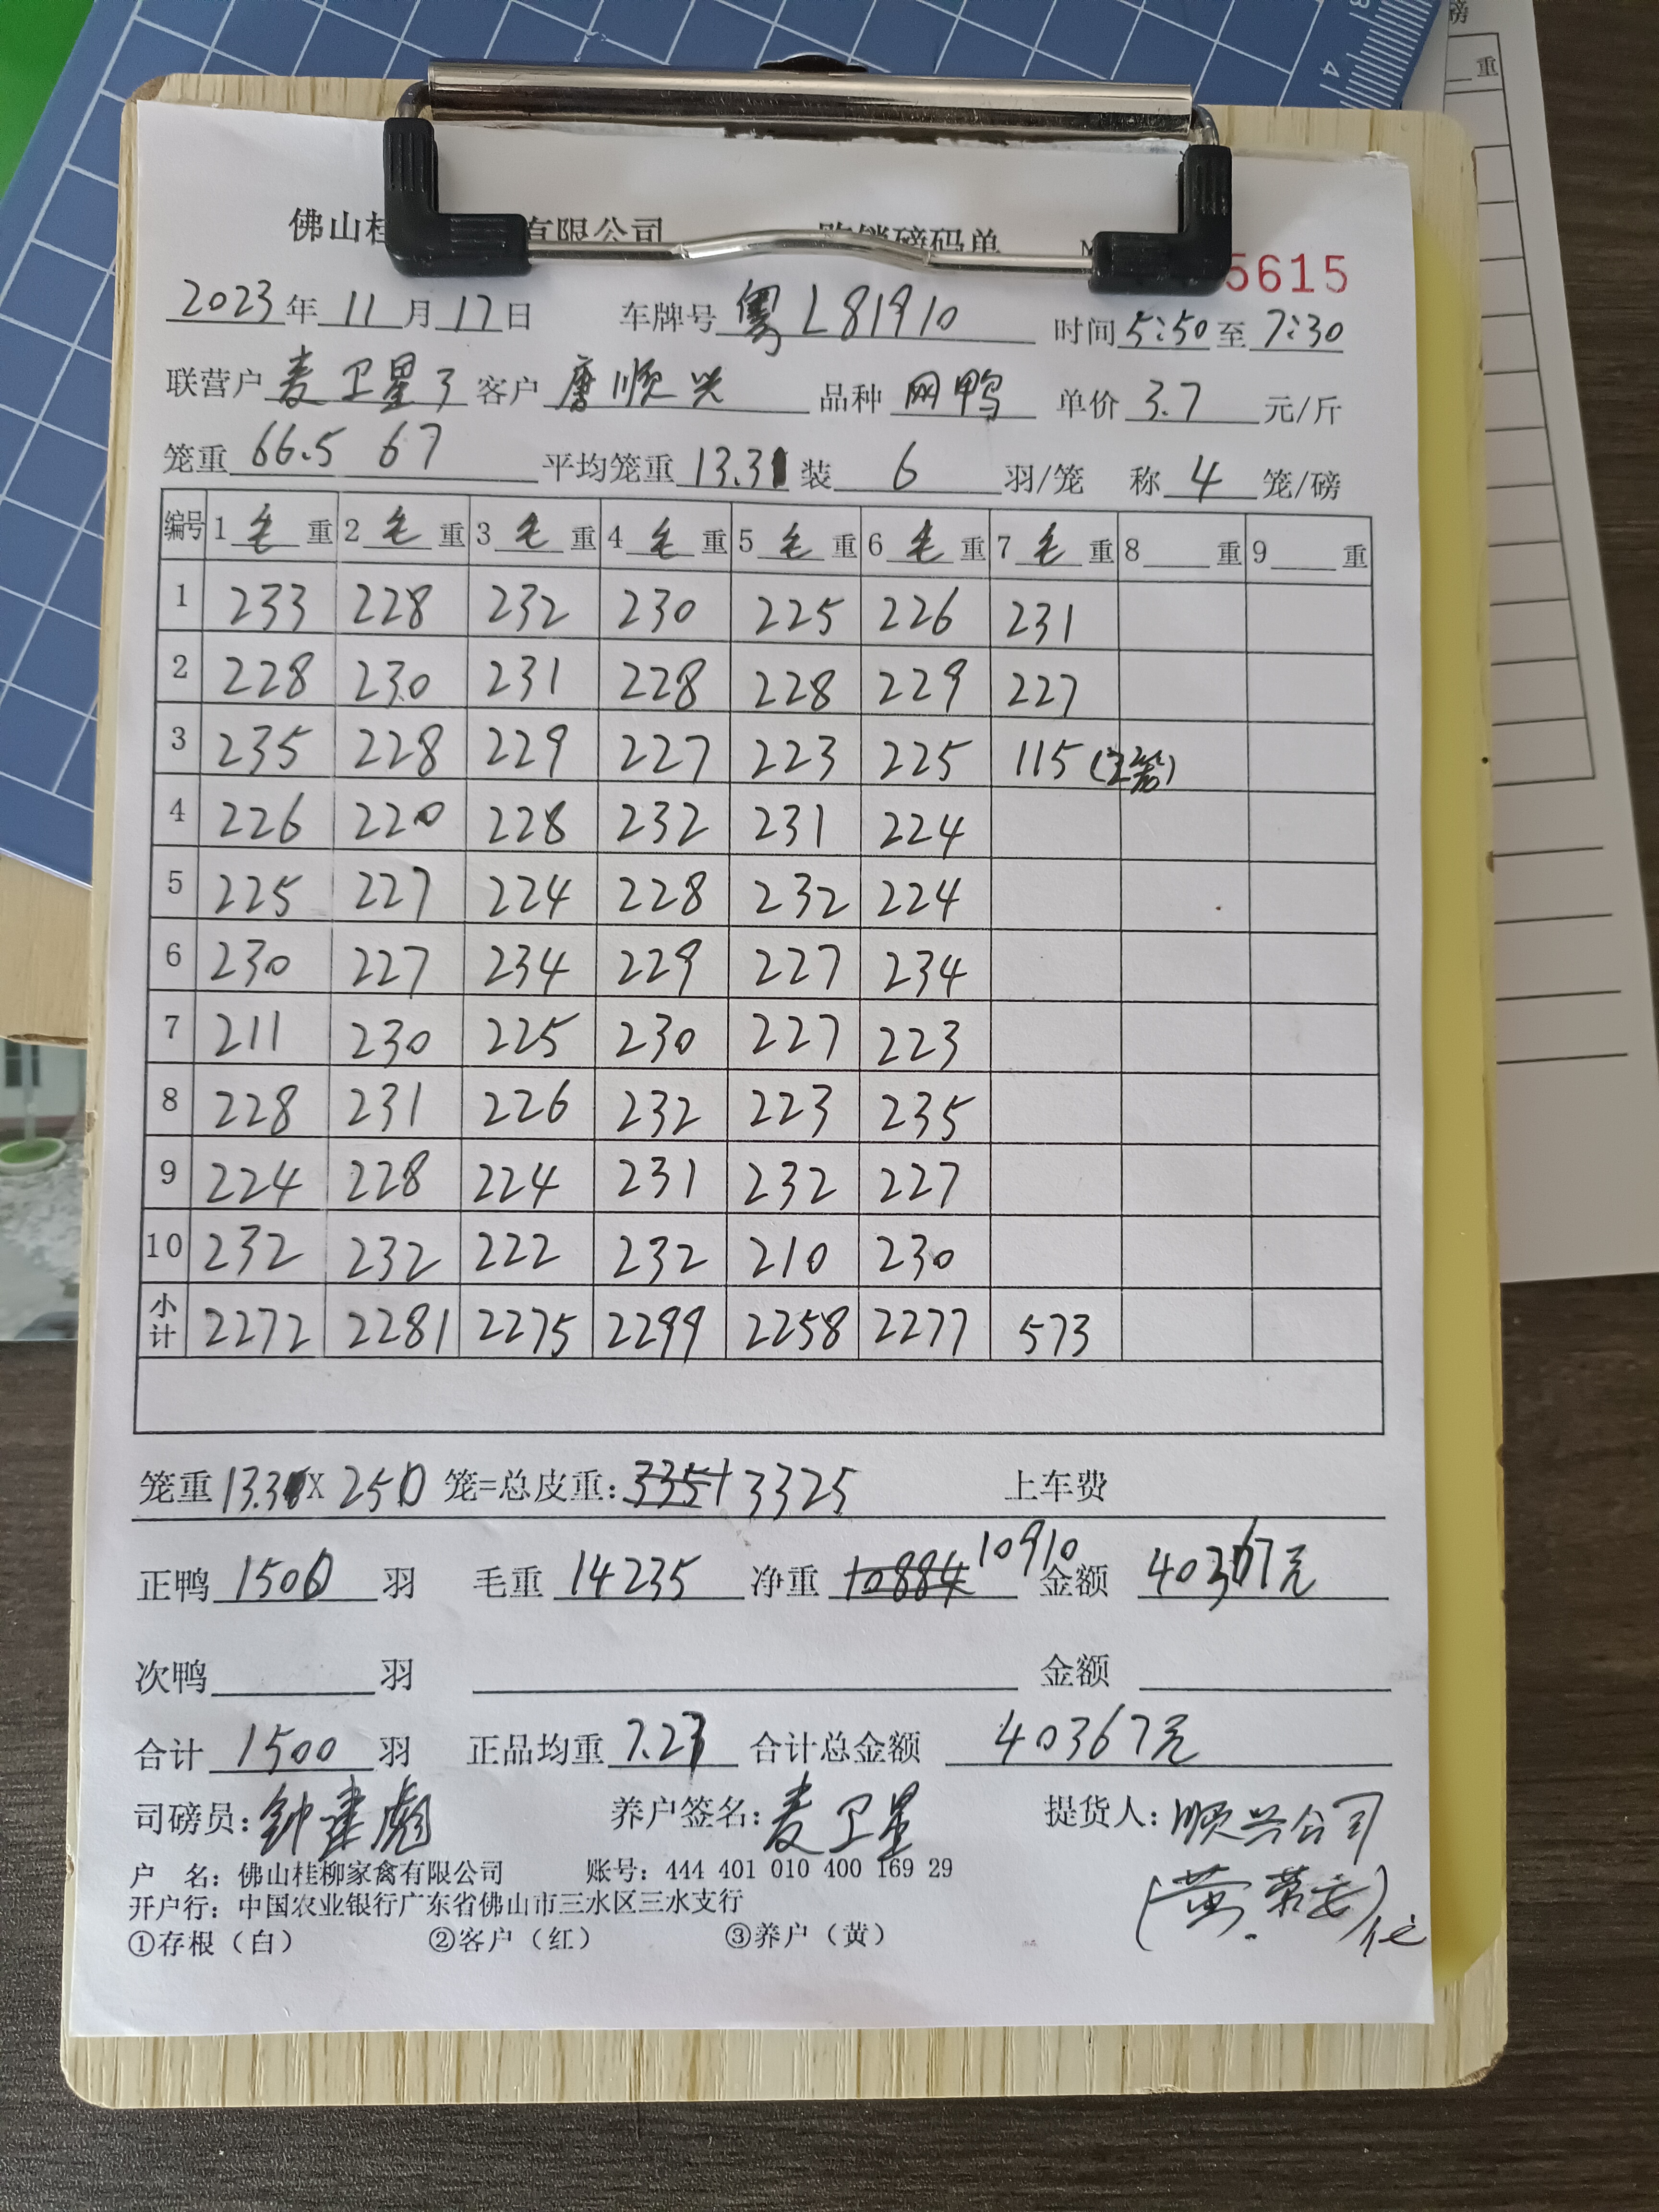 佛山桂 有限公司 购销磅码单 5615
2023年11月17日 车牌号 粤L81910 时间 5:50 至 7:30
联营户 麦卫星3 客户 唐顺兴 品种 网鸭 单价 3.7 元/斤
笼重 66.5 67 平均笼重 13.3 装 6 羽/笼 称 4 笼/磅
编号 1毛重 2毛重 3毛重 4毛重 5毛重 6毛重 7毛重 8 重 9 重
1 233 228 232 230 225 226 231
2 228 230 231 228 228 229 227
3 235 228 229 227 223 225 115
4 226 220 228 232 231 224
5 225 227 224 228 232 224
6 230 227 234 229 227 234
7 211 230 225 230 227 223
8 228 231 226 232 223 235
9 224 228 224 231 232 227
10 232 232 222 232 210 230
小计 2272 2281 2275 2299 2258 2277 573
笼重 13.3 X 250 笼=总皮重: 3351 3325 上车费
正鸭 1500 羽 毛重 14235 净重 10884 10910 金额 40367元
次鸭 羽 金额
合计 1500 羽 正品均重 7.27 合计总金额 40367元
司磅员: 钟建彪 养户签名: 麦卫星 提货人: 顺兴公司
户 名: 佛山桂柳家禽有限公司 账号: 444 401 010 400 169 29
开户行: 中国农业银行广东省佛山市三水区三水支行
①存根（白） ②客户（红） ③养户（黄）